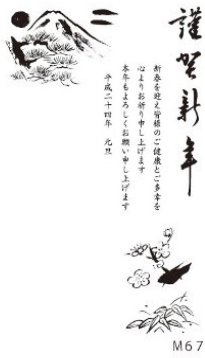 謹賀新年
新春を迎え皆様のご健康とご多幸を
心よりお祈り申し上げます
本年もよろしくお願い申し上げます
平成二十四年 元旦
M67